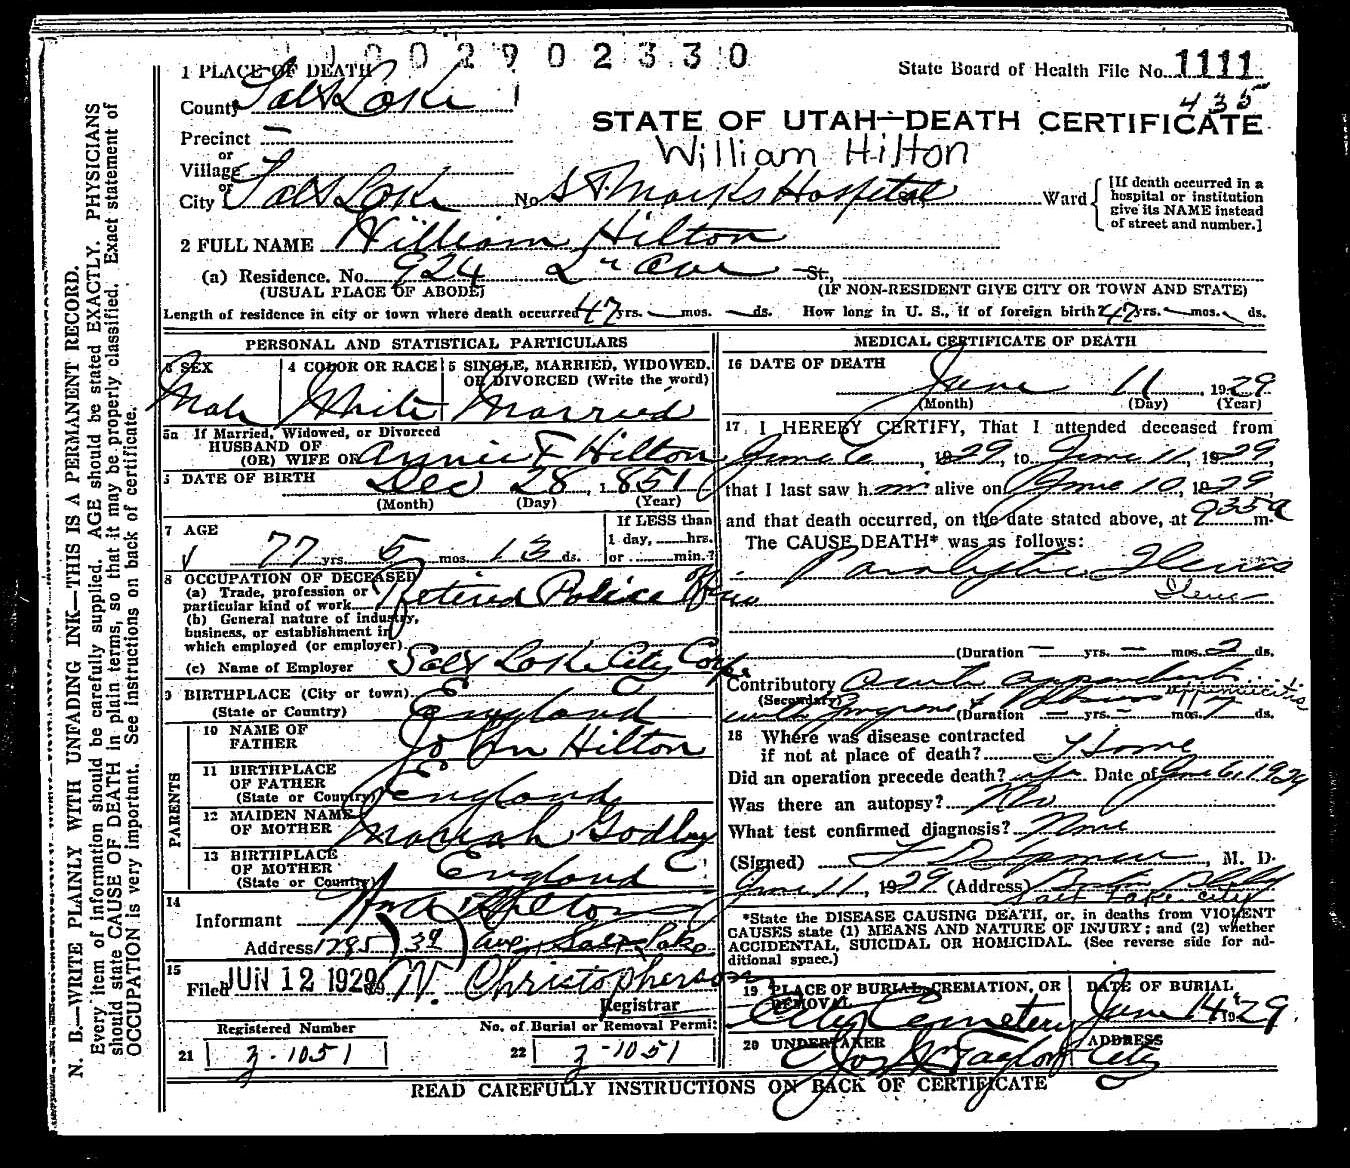 1 0 0 2 9 0 2 3 3 0
1 PLACE OF DEATH
County Salt Lake
Precinct —
or
Village
or
City Salt Lake No. St Marks Hospital St. Ward
[If death occurred in a hospital or institution give its NAME instead of street and number.]
State Board of Health File No. 1111
435
STATE OF UTAH—DEATH CERTIFICATE
William Hilton
2 FULL NAME William Hilton
(a) Residence. No. 924 St.,
(USUAL PLACE OF ABODE) (IF NON-RESIDENT GIVE CITY OR TOWN AND STATE)
Length of residence in city or town where death occurred 47 yrs. — mos. — ds. How long in U. S., if of foreign birth? 47 yrs. — mos. ds.
PERSONAL AND STATISTICAL PARTICULARS
3 SEX
Male
4 COLOR OR RACE
White
5 SINGLE, MARRIED, WIDOWED, OR DIVORCED (Write the word)
Married
5a If Married, Widowed, or Divorced
HUSBAND OF
(OR) WIFE OF Annie F Hilton
DATE OF BIRTH Dec 28, 1851
(Month) (Day) (Year)
7 AGE
77 yrs. 5 mos. 13 ds.
If LESS than
1 day, hrs.
or min.?
8 OCCUPATION OF DECEASED
(a) Trade, profession or
particular kind of work Retired Police Officer
(b) General nature of industry,
business, or establishment in
which employed (or employer)
(c) Name of Employer Salt Lake City Corp.
9 BIRTHPLACE (City or town)
(State or Country) England
PARENTS
10 NAME OF
FATHER John Hilton
11 BIRTHPLACE
OF FATHER
(State or Country) England
12 MAIDEN NAME
OF MOTHER Mariah Godby
13 BIRTHPLACE
OF MOTHER
(State or Country) England
14
Informant Hilton
Address 1785 Ave Salt Lake
15
Filed JUN 12 1929 W. Christopherson
Registrar
Registered Number
21 3-1051
No. of Burial or Removal Permit
22 3-1051
MEDICAL CERTIFICATE OF DEATH
16 DATE OF DEATH
June 11, 1929
(Month) (Day) (Year)
17 I HEREBY CERTIFY, That I attended deceased from
June 6, 1929, to June 11, 1929,
that I last saw him alive on June 10, 1929
and that death occurred, on the date stated above, at 935a m.
The CAUSE DEATH* was as follows:
Paralytic Ileus
Ileus
(Duration — yrs. — mos. 2 ds.
Contributory Acute appendicitis
(Secondary)
with gangrene
(Duration — yrs. — mos. 7 ds.
18 Where was disease contracted
if not at place of death? Home
Did an operation precede death? yes Date of June 6, 1929
Was there an autopsy? No
What test confirmed diagnosis? None
(Signed) , M. D.
June 11, 1929 (Address) Boston Bldg
Salt Lake City
*State the DISEASE CAUSING DEATH, or, in deaths from VIOLENT
CAUSES state (1) MEANS AND NATURE OF INJURY; and (2) whether
ACCIDENTAL, SUICIDAL OR HOMICIDAL. (See reverse side for ad-
ditional space.)
19 PLACE OF BURIAL, CREMATION, OR
REMOVAL
City Cemetery
DATE OF BURIAL
June 14, 1929.
20 UNDERTAKER
Jos Wm Taylor
ADDRESS
City
READ CAREFULLY INSTRUCTIONS ON BACK OF CERTIFICATE
N. B.—WRITE PLAINLY WITH UNFADING INK—THIS IS A PERMANENT RECORD.
Every item of information should be carefully supplied. AGE should be stated EXACTLY. PHYSICIANS
should state CAUSE OF DEATH in plain terms, so that it may be properly classified. Exact statement of
OCCUPATION is very important. See instructions on back of certificate.